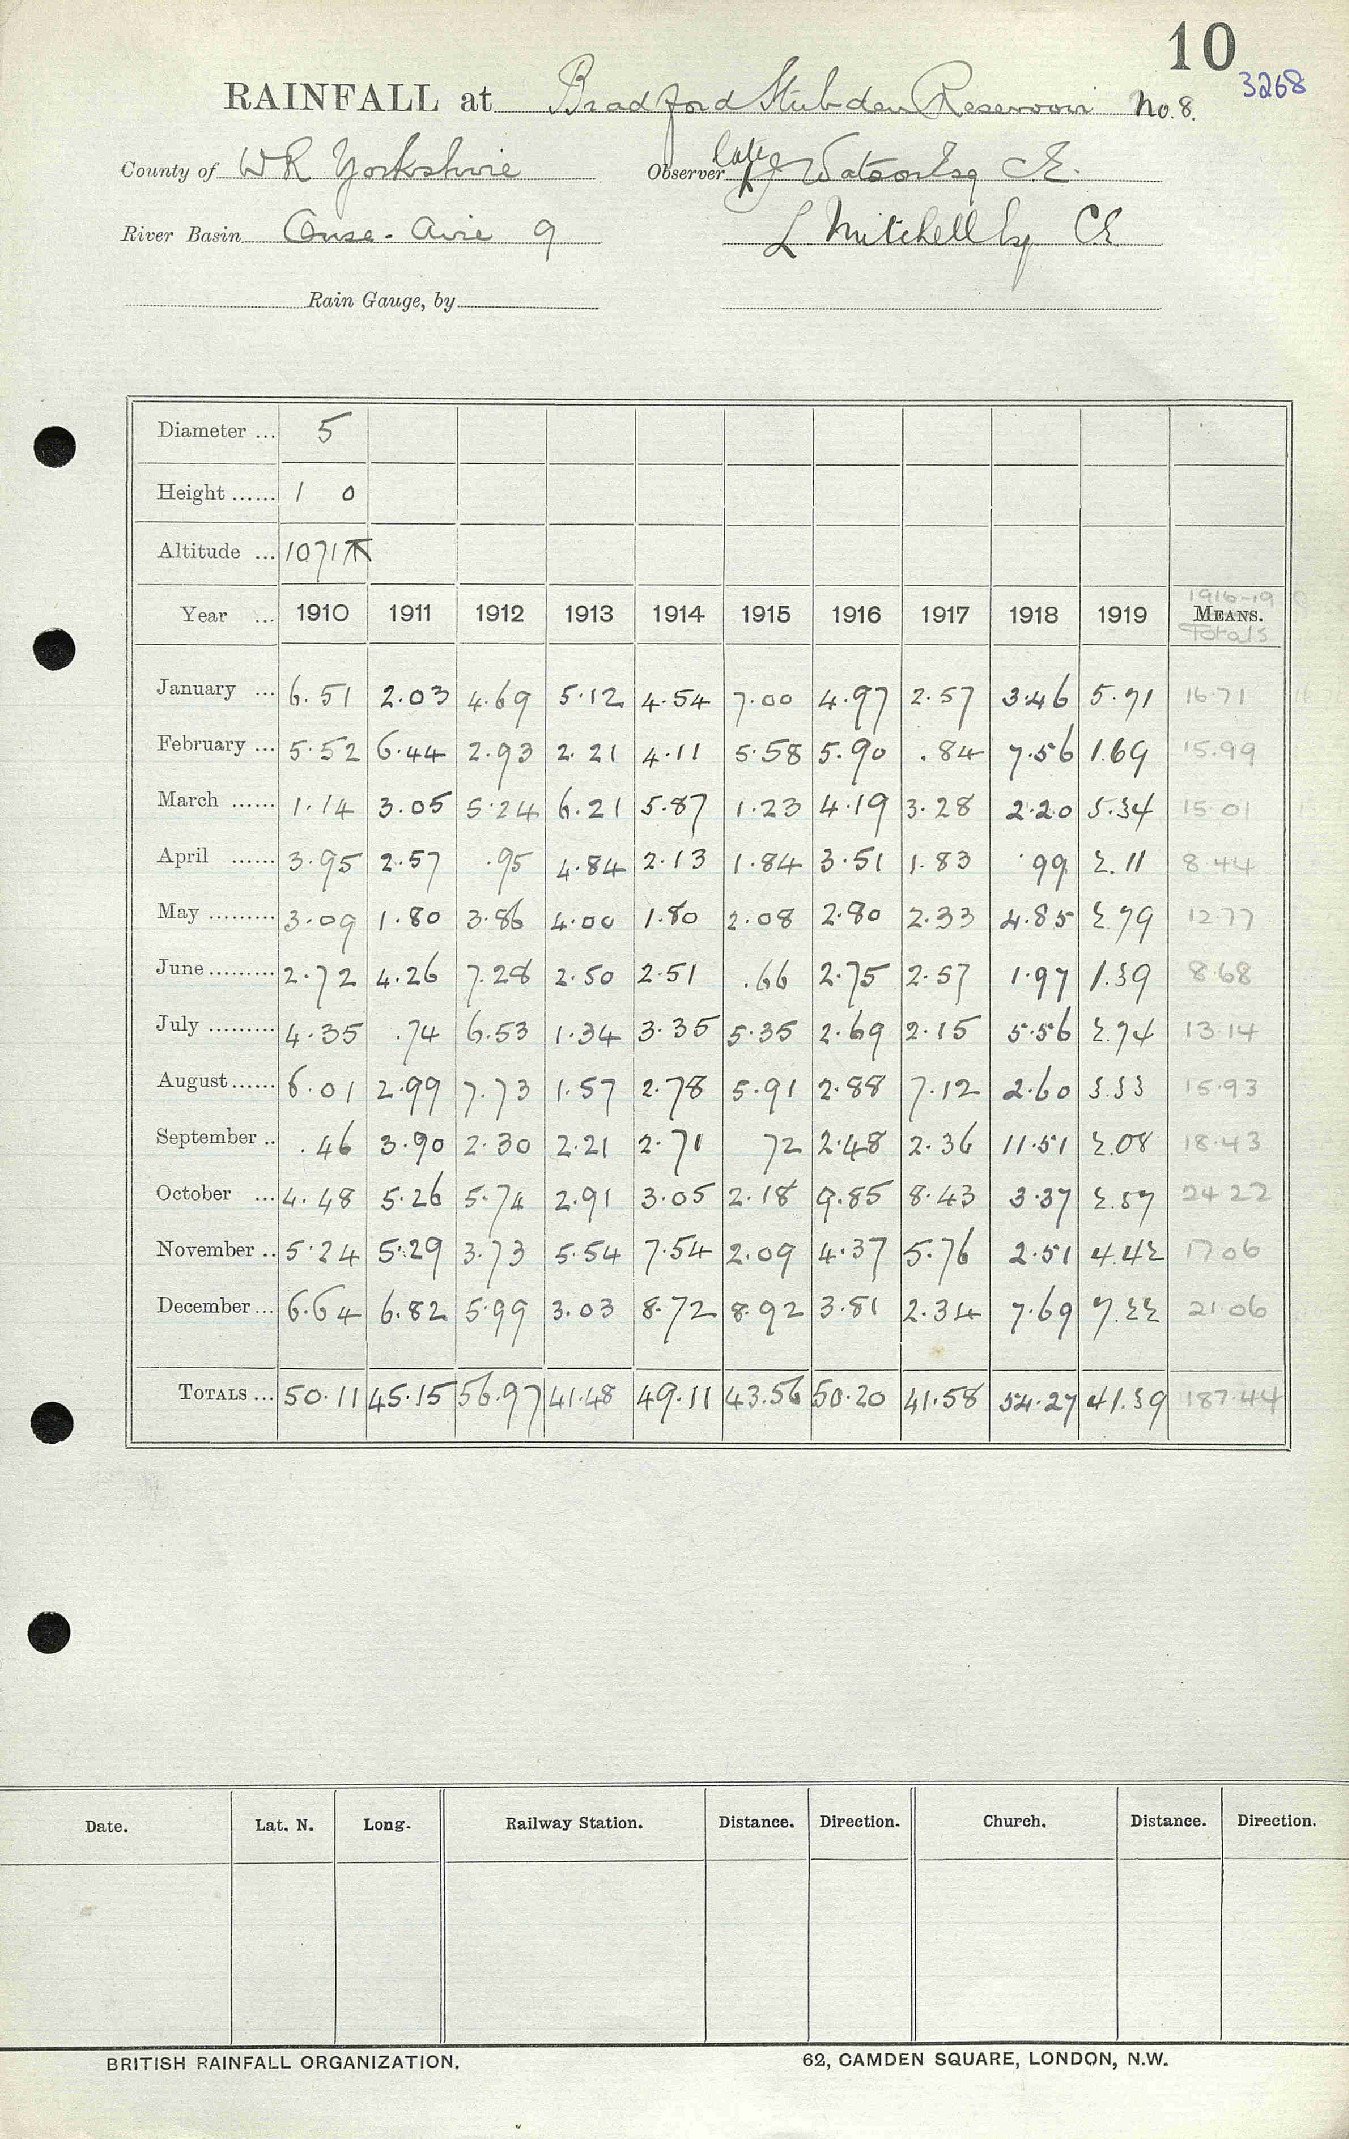 10
3268
RAINFALL at Bradford Stubden Reservoir No. 8.
County of W R Yorkshire Observer late J Watson Esq C.E.
River Basin Ouse - Aire 9 L Mitchell Esq CE
Rain Gauge, by
Diameter ... 5
Height ...... 1 0
Altitude ... 1071
1916-19
Year ... 1910 1911 1912 1913 1914 1915 1916 1917 1918 1919 MEANS.
Totals
January ... 6.51 2.03 4.69 5.12 4.54 7.00 4.97 2.57 3.46 5.71 16.71
February ... 5.52 6.44 2.93 2.21 4.11 5.58 5.90 .84 7.56 1.69 15.99
March ...... 1.14 3.05 5.24 6.21 5.87 1.23 4.19 3.28 2.20 5.34 15.01
April ...... 3.95 2.57 .95 4.84 2.13 1.84 3.51 1.83 .99 2.11 8.44
May ......... 3.09 1.80 3.86 4.00 1.80 2.08 2.80 2.33 4.85 2.79 12.77
June ......... 2.72 4.26 7.28 2.50 2.51 .66 2.75 2.57 1.97 1.39 8.68
July ......... 4.35 .74 6.53 1.34 3.35 5.35 2.69 2.15 5.56 2.74 13.14
August ...... 6.01 2.99 7.73 1.57 2.78 5.91 2.88 7.12 2.60 3.33 15.93
September .. .46 3.90 2.30 2.21 2.71 72 2.48 2.36 11.51 2.08 18.43
October ... 4.48 5.26 5.74 2.91 3.05 2.18 9.85 8.43 3.37 2.57 24.22
November .. 5.24 5.29 3.73 5.54 7.54 2.09 4.37 5.76 2.51 4.42 17.06
December ... 6.64 6.82 5.99 3.03 8.72 8.92 3.81 2.34 7.69 7.22 21.06
TOTALS ... 50.11 45.15 56.97 41.48 49.11 43.56 50.20 41.58 54.27 41.39 187.44
Date. Lat. N. Long. Railway Station. Distance. Direction. Church. Distance. Direction.
BRITISH RAINFALL ORGANIZATION. 62, CAMDEN SQUARE, LONDON, N.W.